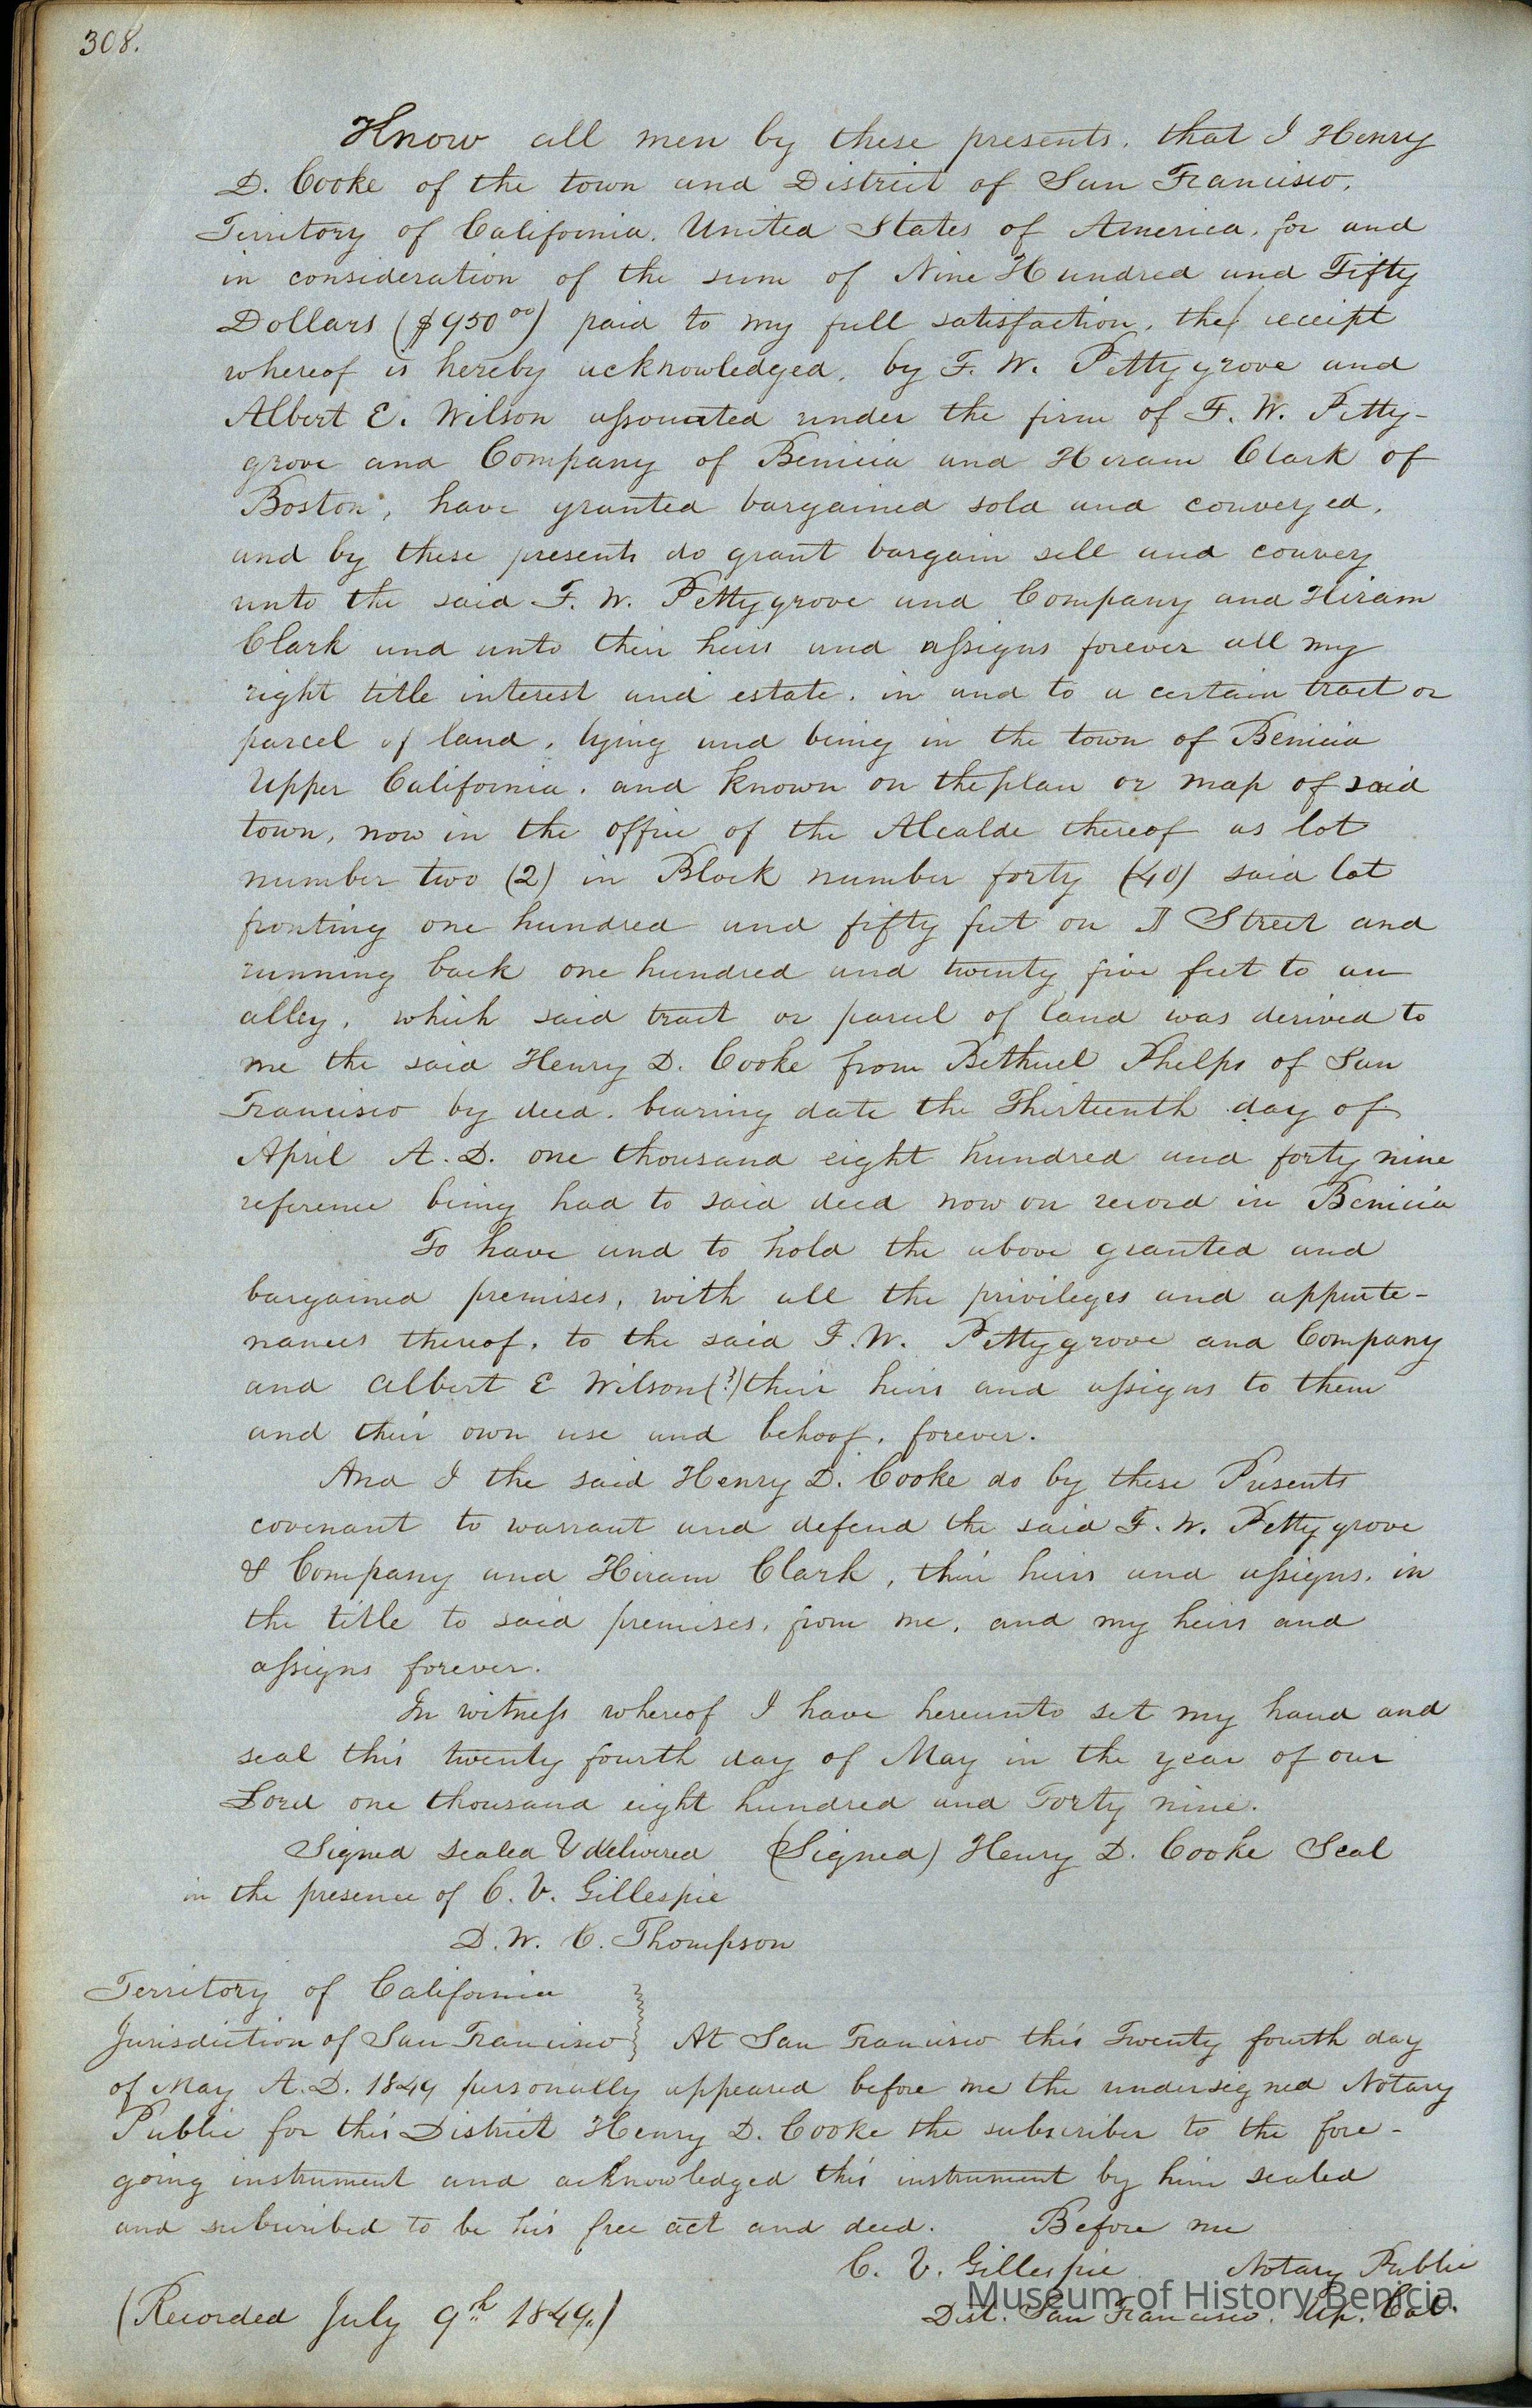 308.
Know all men by these presents, that I Henry
D. Cooke of the town and District of San Francisco,
Territory of California, United States of America, for and
in consideration of the sum of Nine Hundred and Fifty
Dollars ($950 00) paid to my full satisfaction, the receipt
whereof is hereby acknowledged, by F. W. Pettygrove and
Albert E. Wilson associated under the firm of F. W. Petty-
grove and Company of Benicia and Hiram Clark of
Boston, have granted bargained sold and conveyed,
and by these presents do grant bargain sell and convey
unto the said F. W. Pettygrove and Company and Hiram
Clark and unto their heirs and assigns forever all my
right title interest and estate, in and to a certain tract or
parcel of land, lying and being in the town of Benicia
Upper California, and known on the plan or map of said
town, now in the office of the Alcalde thereof as lot
number two (2) in Block number forty (40) said lot
fronting one hundred and fifty feet on Street and
running back one hundred and twenty five feet to an
alley, which said tract or parcel of land was derived to
me the said Henry D. Cooke from Bethuel Phelps of San
Francisco by deed, bearing date the Thirteenth day of
April A. D. one thousand eight hundred and forty nine
reference being had to said deed now on record in Benicia
To have and to hold the above granted and
bargained premises, with all the privileges and appurte-
nances thereof, to the said F. W. Pettygrove and Company
and Albert E Wilson (?) their heirs and assigns to them
and their own use and behoof, forever.
And I the said Henry D. Cooke do by these Presents
covenant to warrant and defend the said F. W. Pettygrove
& Company and Hiram Clark, their heirs and assigns, in
the title to said premises, from me, and my heirs and
assigns forever.
In witness whereof I have hereunto set my hand and
seal this twenty fourth day of May in the year of our
Lord one thousand eight hundred and Forty nine.
Signed sealed & delivered (Signed) Henry D. Cooke Seal
in the presence of C. V. Gillespie
D. W. C. Thompson
Territory of California
Jurisdiction of San Francisco } At San Francisco this Twenty fourth day
of May A. D. 1849 personally appeared before me the undersigned Notary
Public for this District Henry D. Cooke the subscriber to the fore-
going instrument and acknowledged this instrument by him sealed
and subscribed to be his free act and deed. Before me
C. V. Gillespie Notary Public
Dist. San Francisco. Up. Cal.
(Recorded July 9th 1849.)
Museum of History Benicia